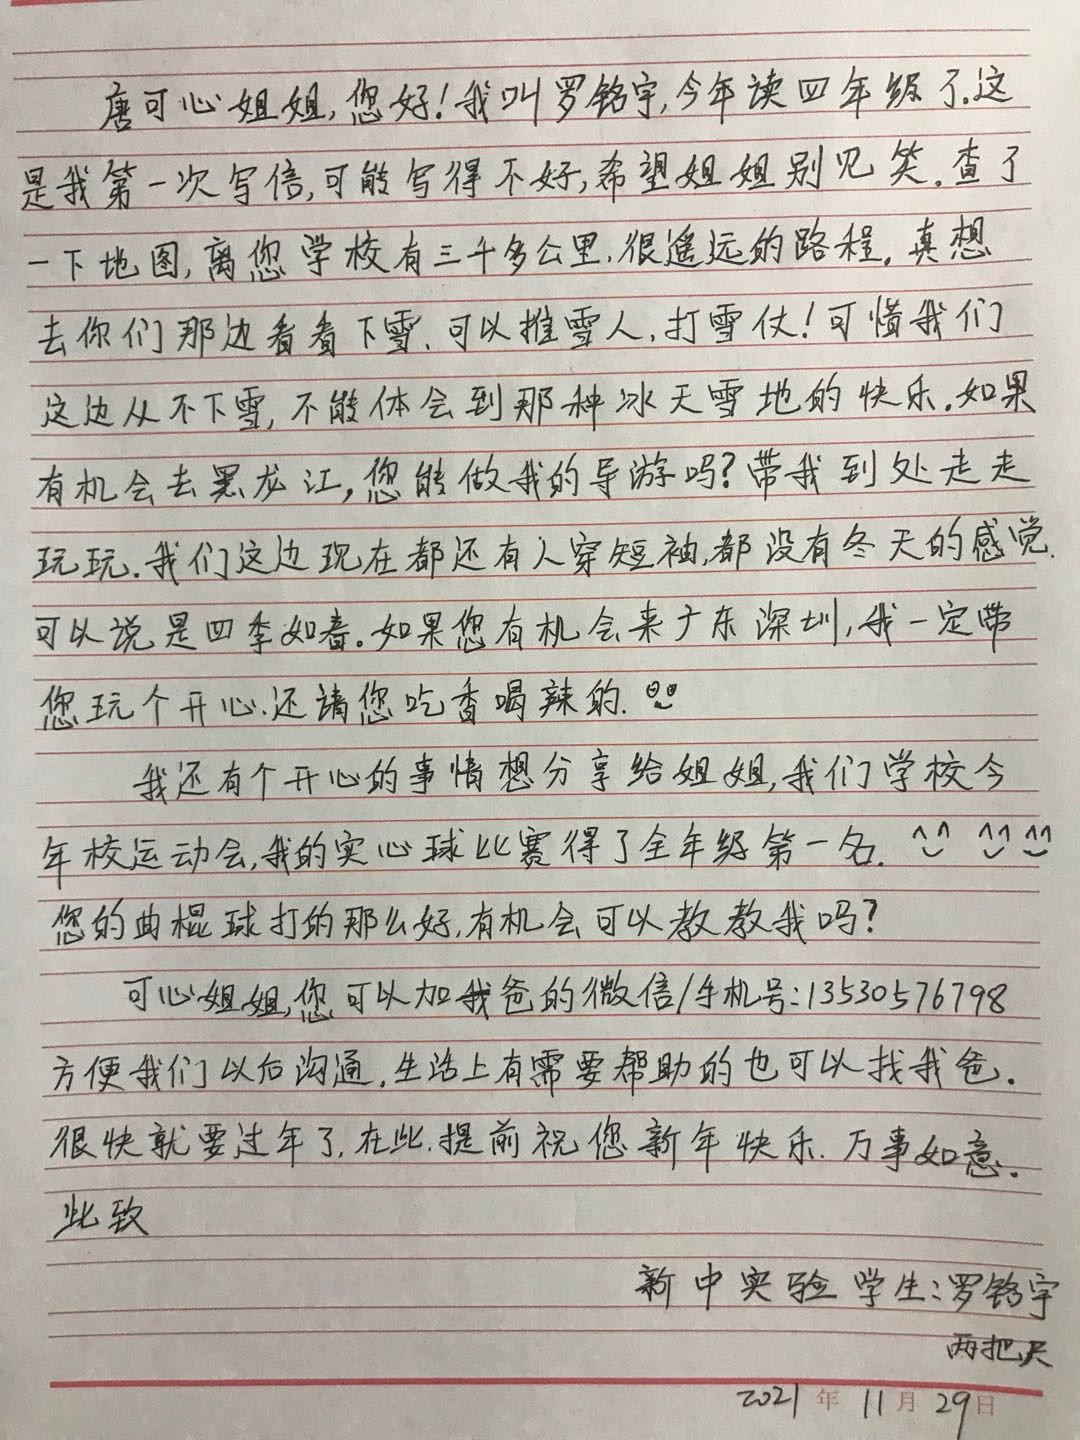 唐可心姐姐,您好!我叫罗铭宇,今年读四年级了.这
是我第一次写信,可能写得不好,希望姐姐别见笑.查了
一下地图,离您学校有三千多公里.很遥远的路程.真想
去你们那边看看下雪.可以推雪人.打雪仗!可惜我们
这边从不下雪,不能体会到那种冰天雪地的快乐.如果
有机会去黑龙江,您能做我的导游吗?带我到处走走
玩玩.我们这边现在都还有人穿短袖,都没有冬天的感觉.
可以说是四季如春.如果您有机会来广东深圳,我一定带
您玩个开心.还请您吃香喝辣的.
我还有个开心的事情想分享给姐姐,我们学校今
年校运动会,我的实心球比赛得了全年级第一名. ^^ ^^ ^^
您的曲棍球打的那么好,有机会可以教教我吗?
可心姐姐,您可以加我爸的微信/手机号:13530576798
方便我们以后沟通.生活上有需要帮助的也可以找我爸.
很快就要过年了,在此.提前祝您新年快乐.万事如意.
此致
新中实验学生:罗铭宇
两把尺
2021年11月29日